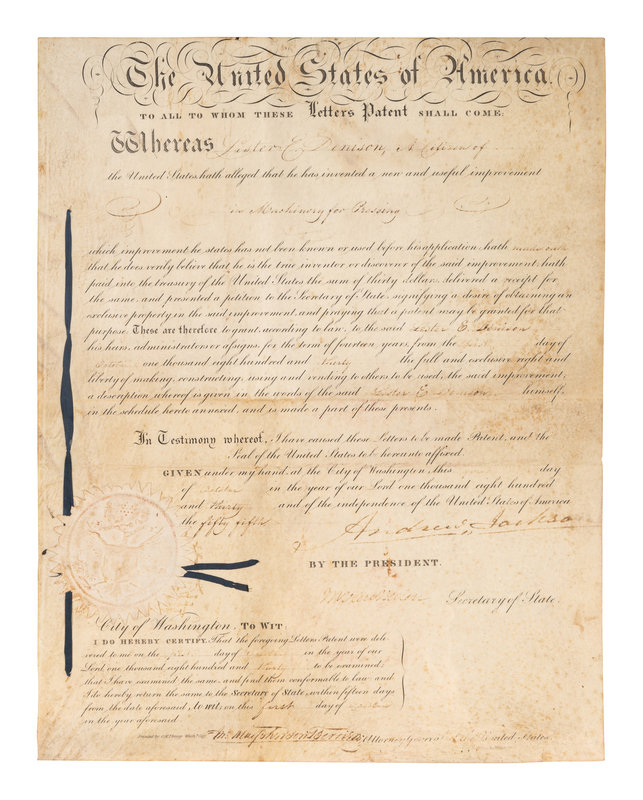 The United States of America.
TO ALL TO WHOM THESE Letters Patent SHALL COME:
Whereas Lester E. Denison, A citizen of
the United States, hath alleged that he has invented a new and useful improvement
in Machinery for Pressing
which improvement he states has not been known or used before his application, hath made oath
that he does verily believe that he is the true inventor or discoverer of the said improvement, hath
paid into the treasury of the United States the sum of thirty dollars, delivered a receipt for
the same, and presented a petition to the Secretary of State, signifying a desire of obtaining an
exclusive property in the said improvement, and praying that a patent may be granted for that
purpose. These are therefore to grant, according to law, to the said Lester E. Denison
his heirs, administrators or assigns, for the term of fourteen years, from the first day of
October one thousand eight hundred and thirty the full and exclusive right and
liberty of making, constructing, using and vending to others to be used, the said improvement,
a description whereof is given in the words of the said Lester E. Denison himself,
in the schedule hereto annexed, and is made a part of these presents.
In Testimony whereof, I have caused these Letters to be made Patent, and the
Seal of the United States to be hereunto affixed.
GIVEN under my hand, at the City of Washington, this day
of October in the year of our Lord one thousand eight hundred
and thirty and of the independence of the United States of America
the fifty fifth
Andrew Jackson
BY THE PRESIDENT.
Secretary of State.
City of Washington, TO WIT:
I DO HEREBY CERTIFY, That the foregoing Letters Patent were deli-
vered to me on the first day of October in the year of our
Lord one thousand eight hundred and thirty to be examined;
that I have examined the same, and find them conformable to law; and
I do hereby return the same to the Secretary of State, within fifteen days
from the date aforesaid, to wit: on this first day of October
in the year aforesaid.
Attorney General of the United States.